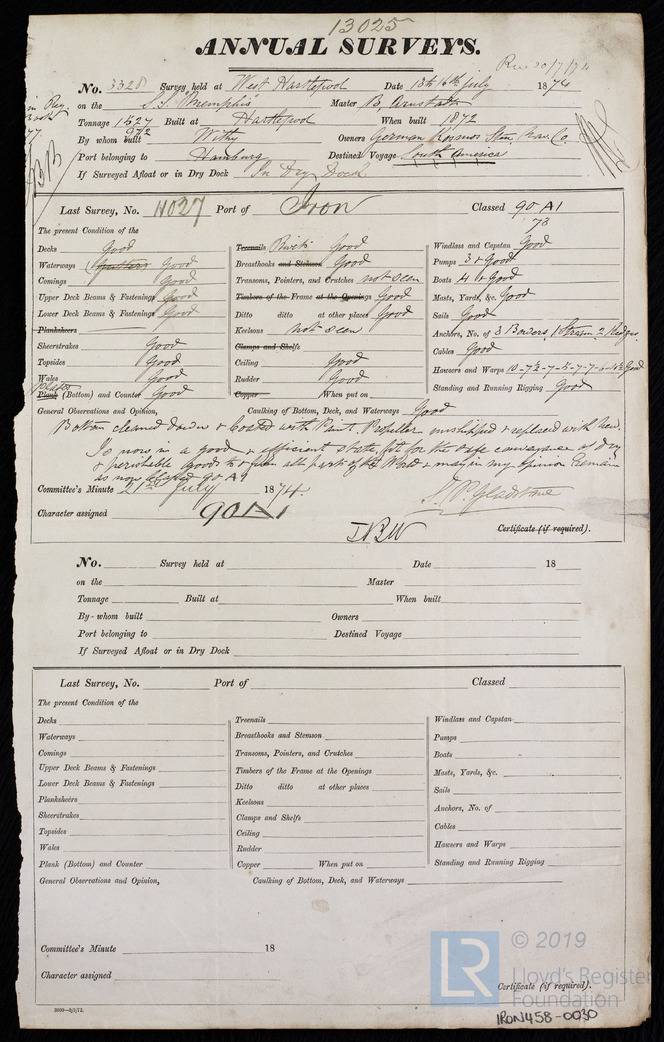 13025
ANNUAL SURVEYS.
Rec 20/7/74
No. 3328 Survey held at West Hartlepool Date 13th 16th July 1874
on the S.S. "Memphis" Master B.
Tonnage 1527 972 Built at Hartlepool When built 1872
By whom built Withy Owners German Kosmos Stm. Nav Co.
Port belonging to Hamburg Destined Voyage South America
If Surveyed Afloat or in Dry Dock In Dry Dock
Last Survey, No. 11027 Port of Iron Classed 90 A1
73
The present Condition of the
Decks Good
Waterways Gutters Good
Comings Good
Upper Deck Beams & Fastenings Good
Lower Deck Beams & Fastenings Good
Planksheers
Sheerstrakes Good
Topsides Good
Wales Good
Plates
Plank (Bottom) and Counter Good
Treenails Rivets Good
Breasthooks and Stemson Good
Transoms, Pointers, and Crutches not seen
Timbers of the Frame at the Openings Good
Ditto ditto at other places Good
Keelsons not seen
Clamps and Shelfs
Ceiling Good
Rudder Good
Copper When put on
Windlass and Capstan Good
Pumps 3 & Good
Boats 4 & Good
Masts, Yards, &c. Good
Sails Good
Anchors, No. of 3 Bowers, 1 Stream, 2 Kedges
Cables Good
Hawsers and Warps Good
Standing and Running Rigging Good
General Observations and Opinion, Caulking of Bottom, Deck, and Waterways Good
Bottom cleaned down & coated with Paint. Propeller unshipped & replaced with New.
Is now in a good & efficient state, fit for the safe conveyance of dry
& perishable goods to & from all parts of the World & may in my opinion remain
as now classed 90 A1
Committee's Minute 21st July 1874.
J. P. Gladstone
Character assigned 90A1
Certificate (if required).
No. Survey held at Date 18
on the Master
Tonnage Built at When built
By whom built Owners
Port belonging to Destined Voyage
If Surveyed Afloat or in Dry Dock
Last Survey, No. Port of Classed
The present Condition of the
Decks
Waterways
Comings
Upper Deck Beams & Fastenings
Lower Deck Beams & Fastenings
Planksheers
Sheerstrakes
Topsides
Wales
Plank (Bottom) and Counter
Treenails
Breasthooks and Stemson
Transoms, Pointers, and Crutches
Timbers of the Frame at the Openings
Ditto ditto at other places
Keelsons
Clamps and Shelfs
Ceiling
Rudder
Copper When put on
Windlass and Capstan
Pumps
Boats
Masts, Yards, &c.
Sails
Anchors, No. of
Cables
Hawsers and Warps
Standing and Running Rigging
General Observations and Opinion, Caulking of Bottom, Deck, and Waterways
Committee's Minute 18
Character assigned
Certificate (if required).
LR © 2019
Lloyd's Register
Foundation
IRON458-0030